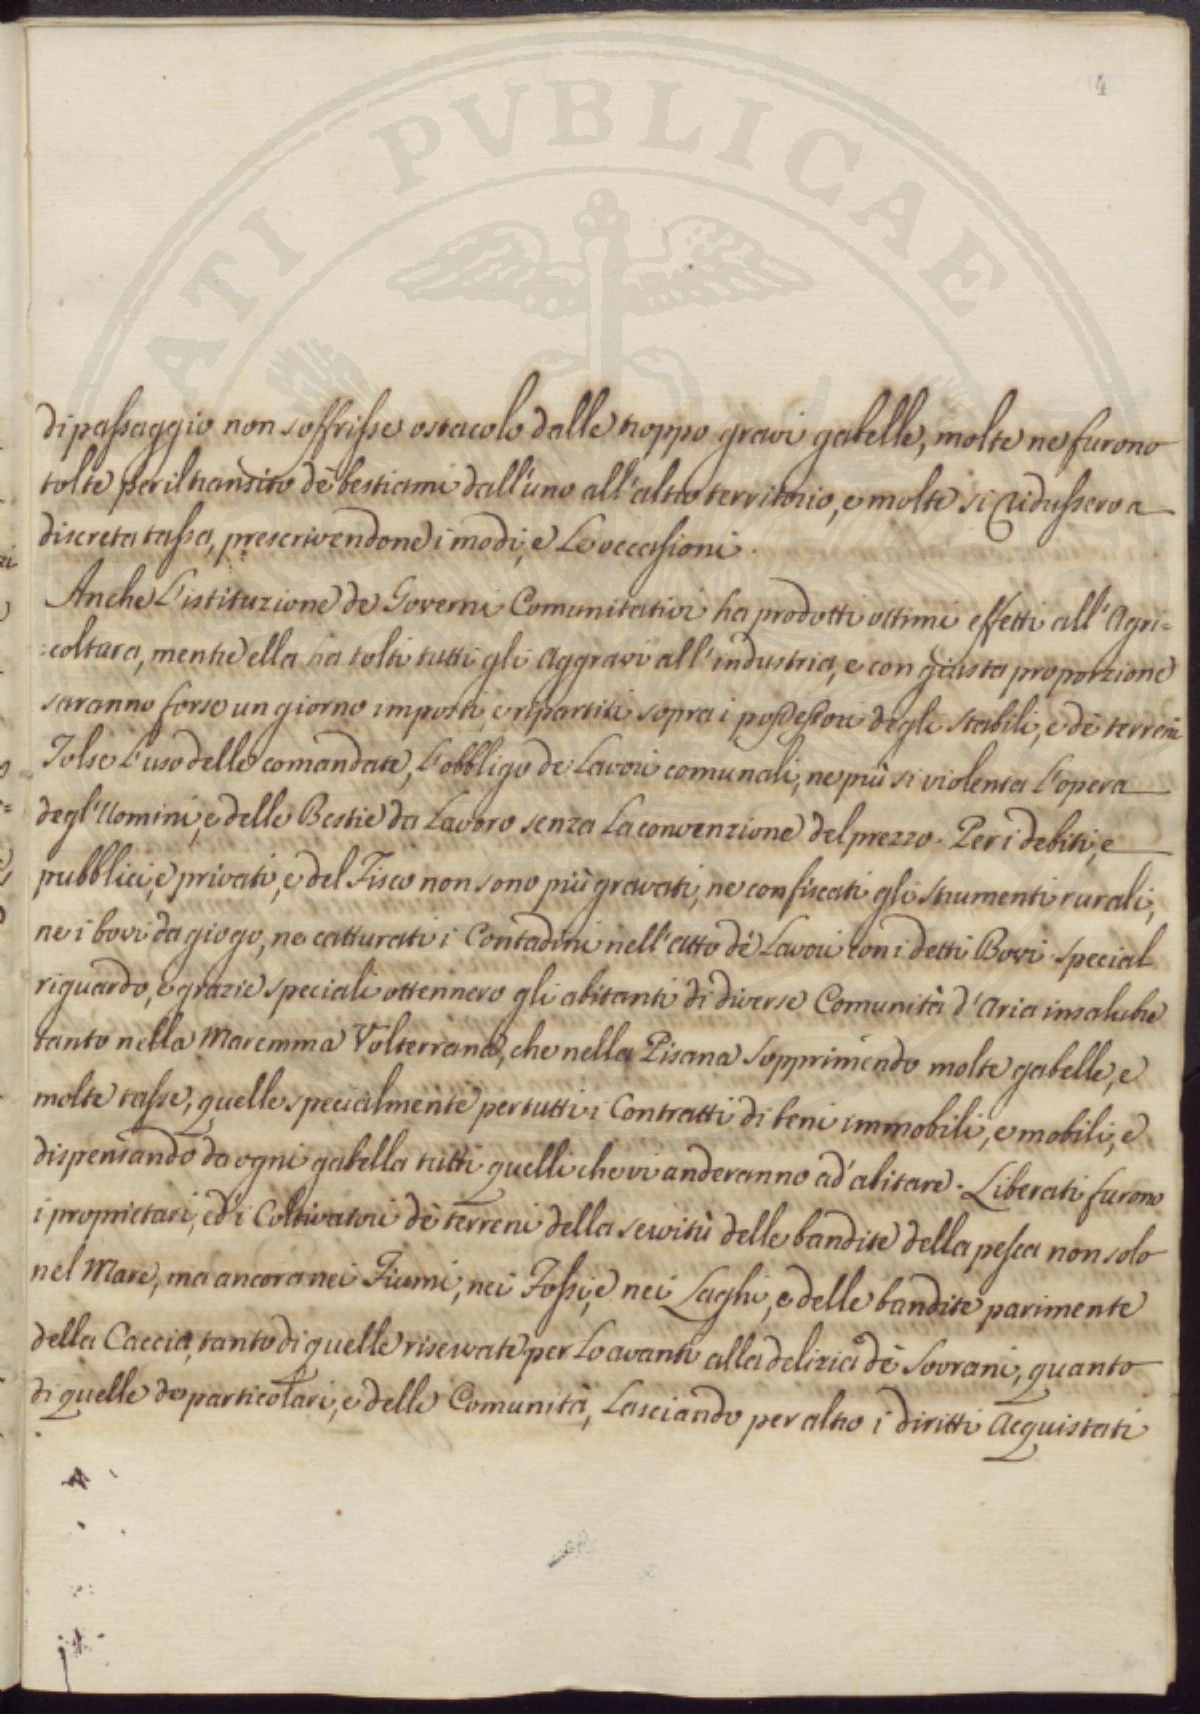 4
ATI PVBLICAE
di passaggio non soffrisse ostacolo dalle troppo gravi gabelle, molte ne furono
tolte per il transito dè bestiami dall'uno all'altro territorio, e molte si ridussero a
discreta tassa, prescrivendone i modi, e Le occasioni.
Anche L'istituzione de Governi Comunitativi ha prodotti ottimi effetti all'Agri=
=coltura, mentre ella ha tolti tutti gli Aggravi all'industria, e con giusta proporzione
saranno forse un giorno imposti, e ripartiti sopra i possessori degli stabili, e dè terreni
Tolse L'uso delle comandate, L'obbligo de Lavori comunali, ne più si violenta L'opera
degl'Uomini, e delle Bestie da Lavoro senza La convenzione del prezzo. Per i debiti, e
pubblici, e privati, e del Fisco non sono più gravati, ne confiscati gli strumenti rurali,
ne i bovi da giogo, ne catturati i Contadini nell'atto dè Lavori con i detti Bovi. special
riguardo, e grazie speciali ottennero gli abitanti di diverse Comunità d'Aria insalubre
tanto nella Maremma Volterrana, che nella Pisana sopprimendo molte gabelle, e
molte tasse, quelle specialmente per tutti i Contratti di beni immobili, e mobili, e
dispensando da ogni gabella tutti quelli che vi anderanno ad abitare. Liberati furono
i proprietari, ed i Coltivatori dè terreni della servitù delle bandite della pesca non solo
nel Mare, ma ancora nei Fiumi, nei Fossi, e nei Laghi, e delle bandite parimente
della Caccia, tanto di quelle riservate per Lo avanti alla delizia dè Sovrani, quanto
di quelle de particolari, e delle Comunità, Lasciando per altro i diritti Acquistati